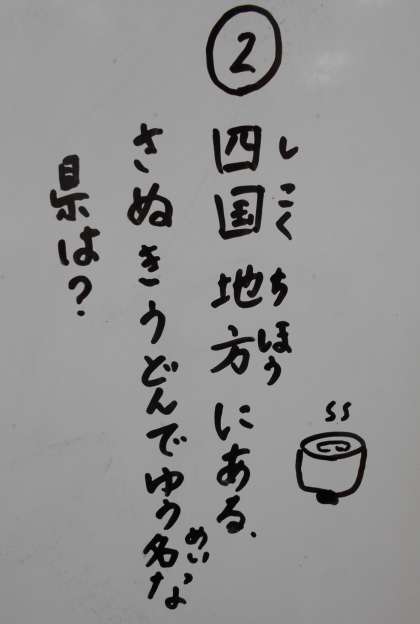 ②
しこくちほう
四国地方にある、
めい
さぬきうどんでゆう名な
県は?